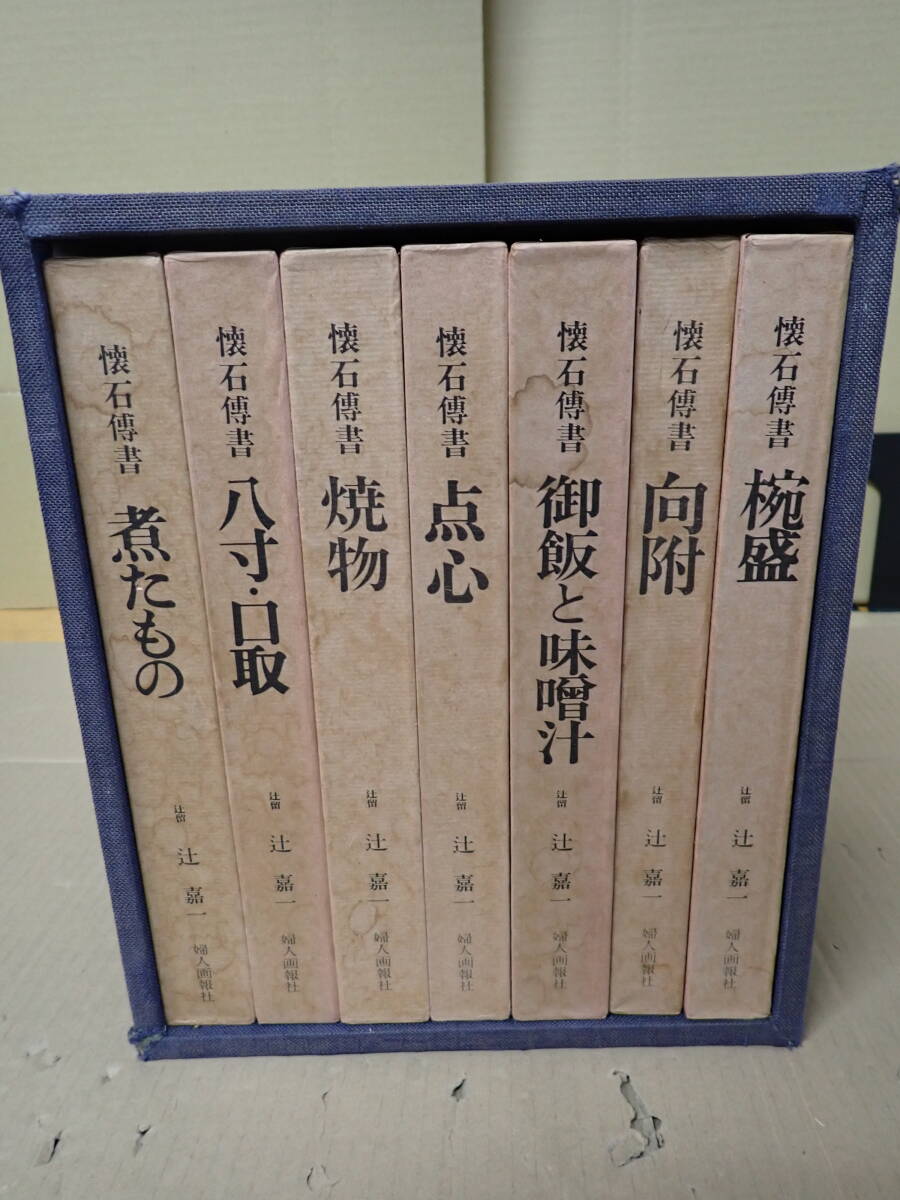 懐石傳書 椀盛 辻留 辻 嘉一 婦人画報社
懐石傳書 向附 辻留 辻 嘉一 婦人画報社
懐石傳書 御飯と味噌汁 辻留 辻 嘉一 婦人画報社
懐石傳書 点心 辻留 辻 嘉一 婦人画報社
懐石傳書 焼物 辻留 辻 嘉一 婦人画報社
懐石傳書 八寸・口取 辻留 辻 嘉一 婦人画報社
懐石傳書 煮たもの 辻留 辻 嘉一 婦人画報社